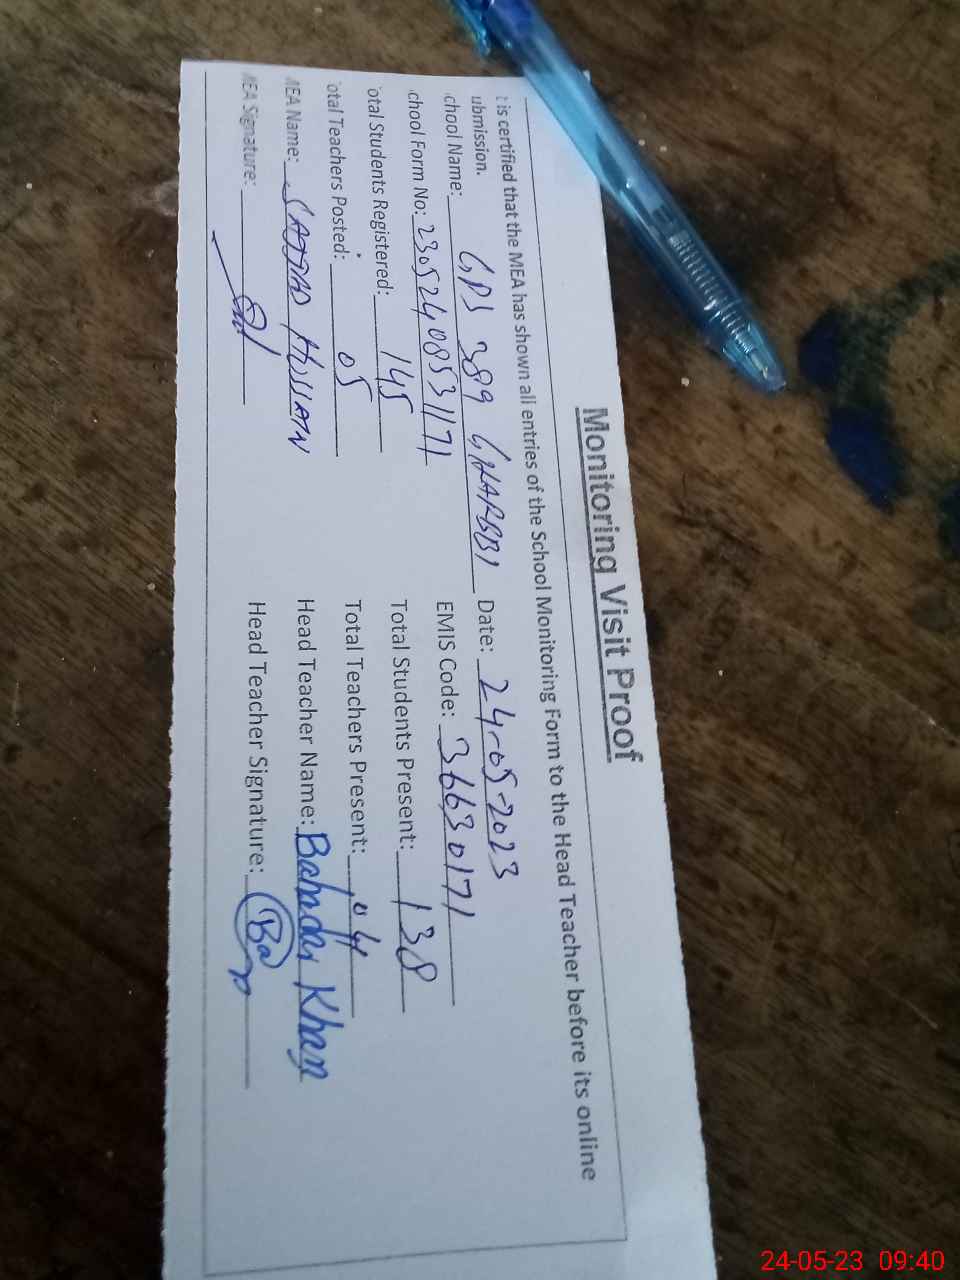 Monitoring Visit Proof
t is certified that the MEA has shown all entries of the School Monitoring Form to the Head Teacher before its online
ubmission.
chool Name: GPS 389 GHARBBI Date: 24-05-2023
chool Form No: 230524085317 1 EMIS Code: 36630171
otal Students Registered: 145 Total Students Present: 138
otal Teachers Posted: 05 Total Teachers Present: 04
MEA Name: SAJJAD HUSSAIN Head Teacher Name: Bahadar Khan
MEA Signature: Head Teacher Signature: Ba
24-05-23 09:40